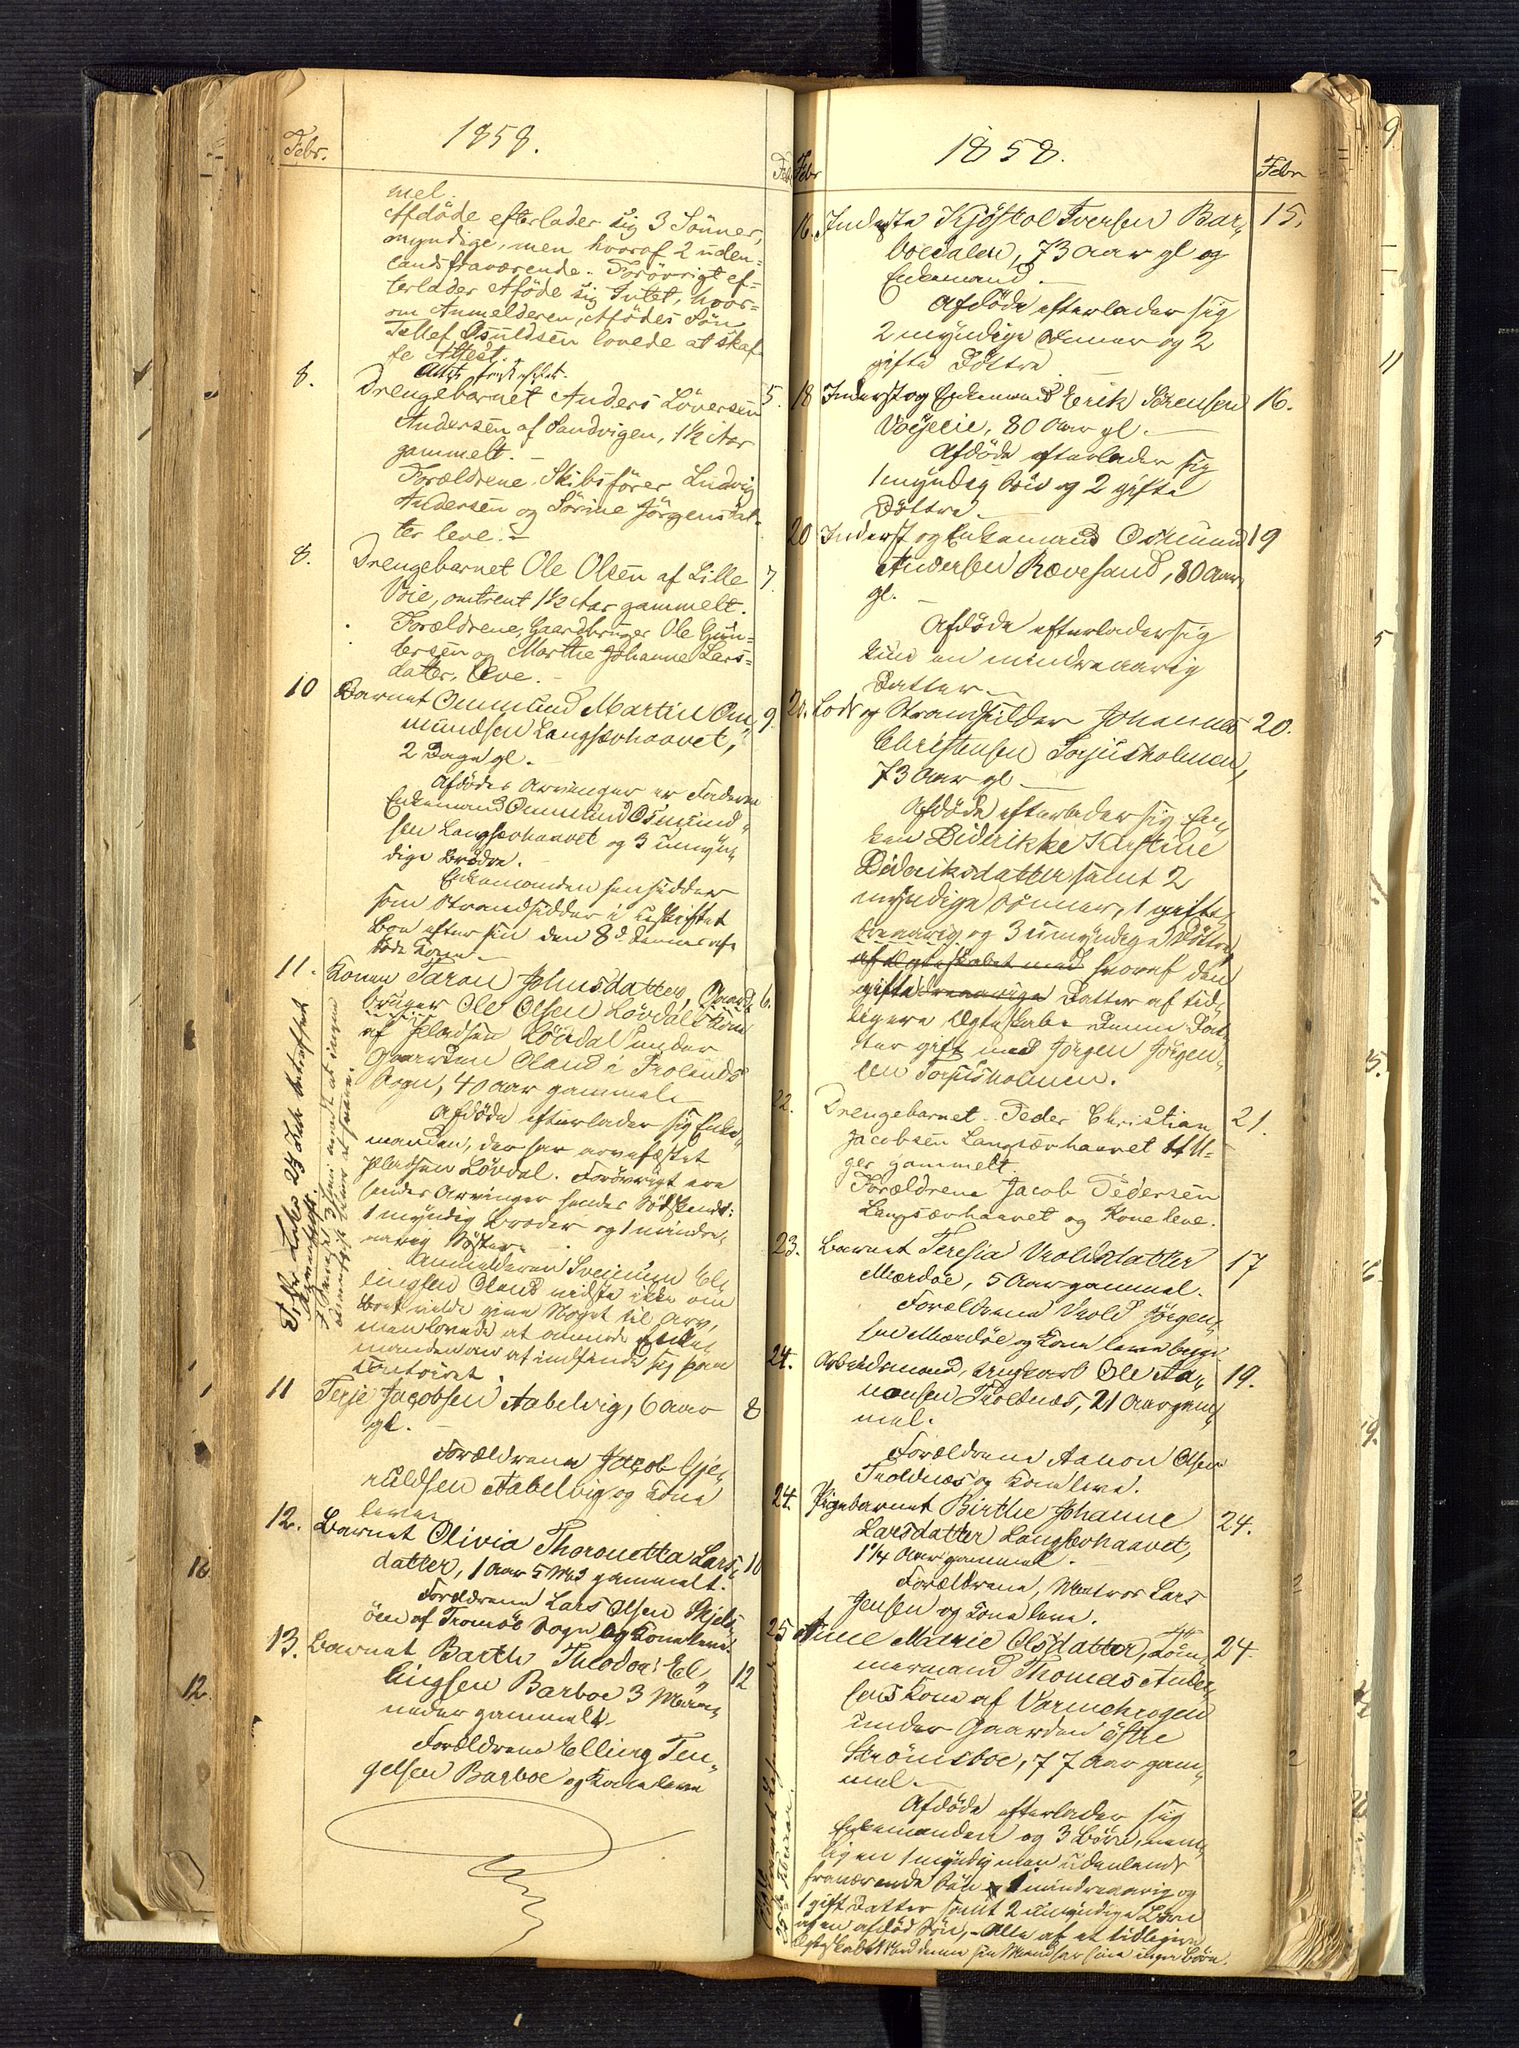 Febr.
1858.
Feb
mel.
Afdöde efterlader sig 3 Sönner,
myndige, men hvoraf 2 uden-
landsfraværende. Forövrigt ef-
terlader Aföde sig Intet, hvor-
om Anmelderen, Afödes Sön
Tellef Osuldsen lovede at skaf-
fe Attest.
8. Drengebarnet Anders Löversen 5.
Andersen af Sandvigen, 1½ Aar
gammelt. -
Forældrene, Skibsförer Ludvig
Andersen og Sörine Jörgensdat-
ter leve. -
8. Drengebarnet Ole Olsen af Lille 7.
Vie, omtrent 1½ Aar gammelt.
Forældrene, Gaardbruger Ole Gun-
dersen og Marthe Johanne Lars-
datter, leve. -
10 Barnet Ommund Martin Om- 9.
mundsen Langsævhaavet,
2 Dage gl. -
Afdödes Arvinger er Faderen
Enkemand Ommund Osmund-
sen Langsævhaavet og 3 umyn-
dige Brödre. -
Enkemanden hensidder
som Strandsidder i uskiftet
Bo efter sin den 8 d. Dennes af-
döde Kone -
11. Konen Taran Johnsdatter, Gaard- 6.
bruger Ole Olsen Lövdals Kone
af Pladsen Lövdal under
Gaarden Oland i Frolands
Sogn, 40 Aar gammel -
Afdöde efterlader sig Enke-
manden, der har arvefæstet
Pladsen Lövdal. Forövrigt ere
hendes Arvinger hendes Södskende:
1 myndig Broder og 1 mindre-
aarig Söster. -
Anmelderen Svennum El-
lingsen Oland vidste ikke om
Boet vilde give Noget til Arv,
men lovede at anmode Enke-
manden om at indfinde sig paa
Contoiret.
11 Terje Jacobsen Aabelvig, 6 Aar 8
gl.
Forældrene Jacob Gje-
ruldsen Aabelvig og Kone
leve.
12. Barnet Olivia Thoronetta Lars- 10
datter, 1 Aar 5 Md gammelt.
Forældrene Lars Olsen Skjels-
öen af Tromöe Sogn og Kone leve.
13. Barnet Barth Theodor El- 12
lingsen Barboe 3 Maa-
neder gammelt.
Forældrene Elling Ten-
gelsen Barboe og Kone leve
Febr
1858.
Febr
16. Inderste Kjöstol Iversen Bar- 15.
boedalen, 73 Aar gl og
Enkemand. -
Afdöde efterlader sig
2 myndige Sönner og 2
gifte Döttre
18 Inderst og Enkemand Erik Sörensen 16.
80 Aar gl. -
Afdöde efterlader sig
1 myndig Sön og 2 gifte
Döttre. -
20 Inderst og Enkemand Osmund 19
Andersen Rævesand, 80 Aar
gl.
Afdöde efterlader sig
kun en mindreaarig
Datter -
20. Lods og Strandsidder Johannes 20.
Christensen Torjusholmen,
73 Aar gl -
Afdöde efterlader sig En-
ken Diderikke Kirstine
Dideriksdatter samt 2
myndige Sönner, 1 gift,
og 3 umyndige Döttre,
af Ægteskabet med hvoraf den
gifte Datter af tid-
ligere Ægteskab. Denne Dat-
ter gift med Jörgen Jörgen-
sen Torjusholmen.
22. Drengebarnet Peder Christian 21.
Jacobsen Langsævhaavet 11 U-
ger gammelt.
Forældrene Jacob Pedersen
Langsævhaavet og Kone leve.
23. Barnet Teresia Vroldsdatter 17
Mærdöe, 5 Aar gammel.
Forældrene Vrold Jörgen-
sen Mærdöe og Kone leve begge.
24. Arbeidsmand, Ungkarl Ole Aa- 19.
nonsen Troldnæs, 21 Aar gam-
mel.
Forældrene Aanon Olsen
Troldnæs og Kone leve.
24. Pigebarnet Birthe Johanne 24.
Larsdatter Langsevhaavet,
1¼ Aar gammel. -
Forældrene, Matros Lars
Jensen og Kone leve.
25 Anne Marie Olsdatter, Töm- 24.
mermand Thomas Ander-
sens Kone af Varmekrogen
under Gaarden östre
Strömsboe, 77 Aar gam-
mel. -
Afdöde efterlader sig
Enkemanden og 3 Börn, nem-
lig en 1 myndig men udenlands
fraværende Sön 1 mindreaarig og
1 gift Datter samt 2 umyndige Börn
af en afdöd Sön, - Alle af et tidligere
Ægteskab. Med denne sin Mand har hun ingen Börn.